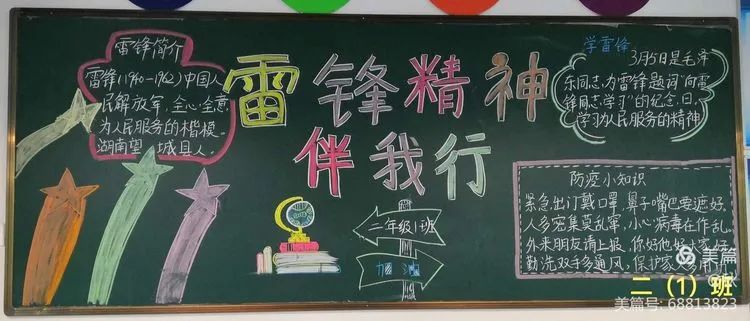 雷锋精神
伴我行
雷锋简介
雷锋(1940-1962)中国人
民解放军，全心全意
为人民服务的楷模。
湖南望城县人。
学雷锋
3月5日是毛泽
东同志为雷锋题词"向雷
锋同志学习"的纪念日，
学习为人民服务的精神
二年级1班
加油
防疫小知识
紧急出门戴口罩，鼻子嘴巴要遮好。
人多密集莫乱窜，小心病毒在作乱。
外来朋友请上报，你好他好大家好。
勤洗双手多通风，保护家
美篇
二（1）班
美篇号: 68813823